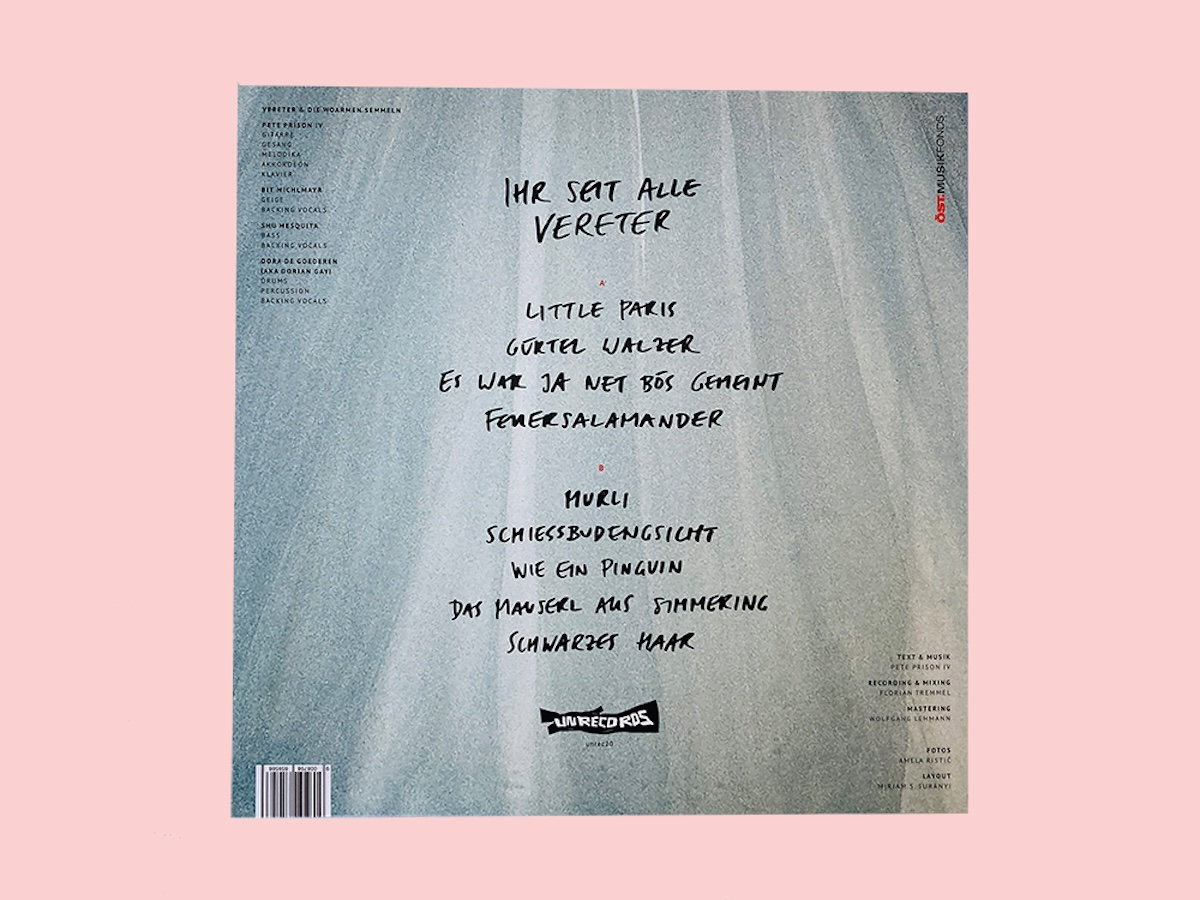 VERETER & DIE WOARMEN SEMMELN
PETE PRISON IV
GITARRE
GESANG
MELODIKA
AKKORDEON
KLAVIER
BIT MICHLMAYR
GEIGE
BACKING VOCALS
SHU MESQUITA
BASS
BACKING VOCALS
DORA DE GOEDEREN
(AKA DORIAN GAY)
DRUMS
PERCUSSION
BACKING VOCALS
ÖST.MUSIKFONDS
IHR SEIT ALLE
VERETER
A
LITTLE PARIS
GÜRTEL WALZER
ES WAR JA NET BÖS GEMEINT
FEUERSALAMANDER
B
MURLI
SCHIESSBUDENGSICHT
WIE EIN PINGUIN
DAS MAUSERL AUS SIMMERING
SCHWARZES HAAR
UNRECORDS
unrec20
TEXT & MUSIK
PETE PRISON IV
RECORDING & MIXING
FLORIAN TREMMEL
MASTERING
WOLFGANG LEHMANN
FOTOS
AMELA RISTIĆ
LAYOUT
MIRIAM S. SURÁNYI